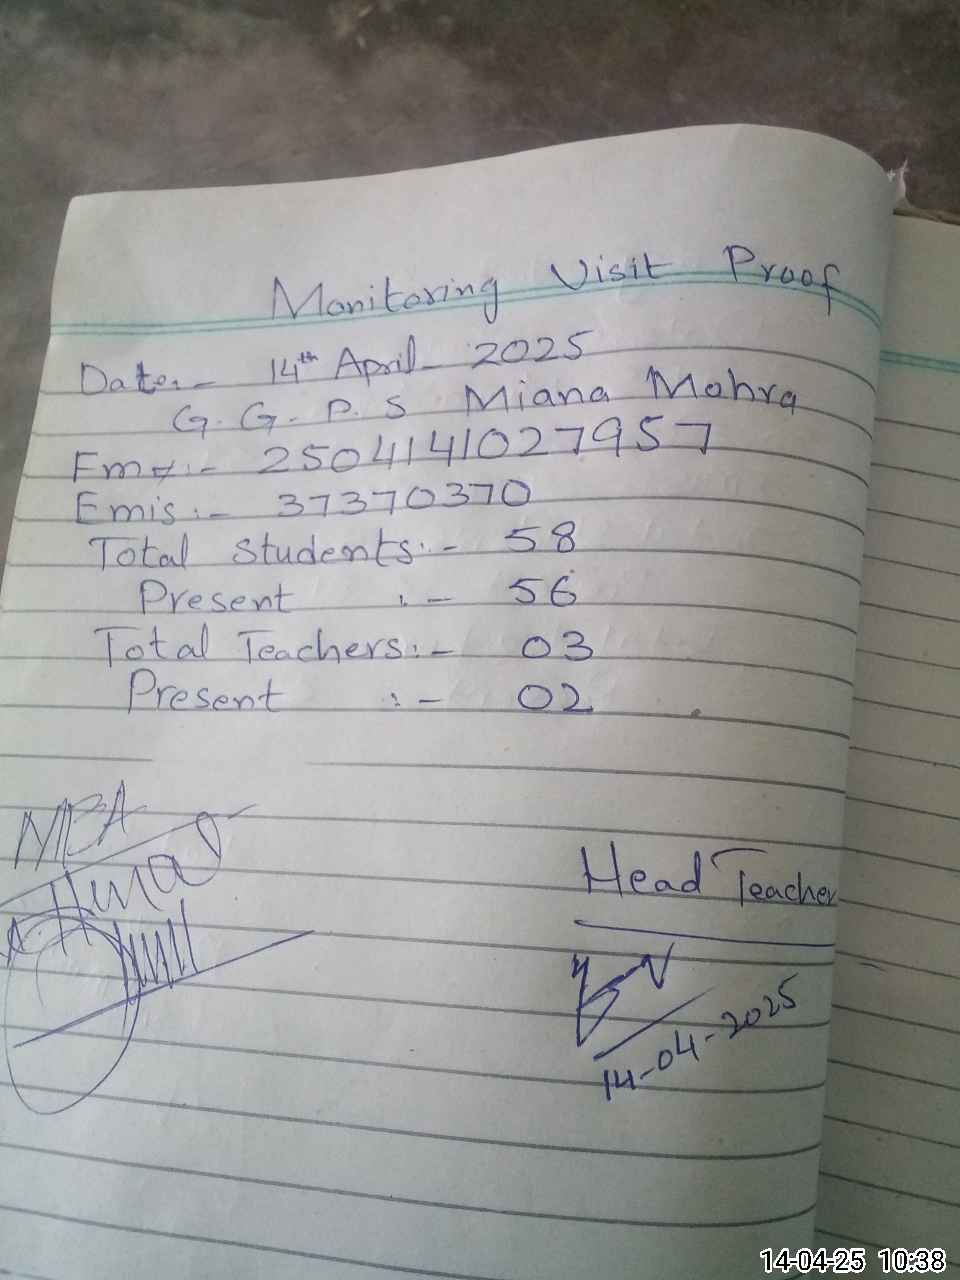 Monitoring Visit Proof
Date:- 14th April 2025
G.G.P.S Miana Mohra
:- 2504141027957
Emis:- 37370370
Total Students:- 58
Present :- 56
Total Teachers:- 03
Present :- 02
MEA
Head Teacher
14-04-2025
14-04-25 10:38